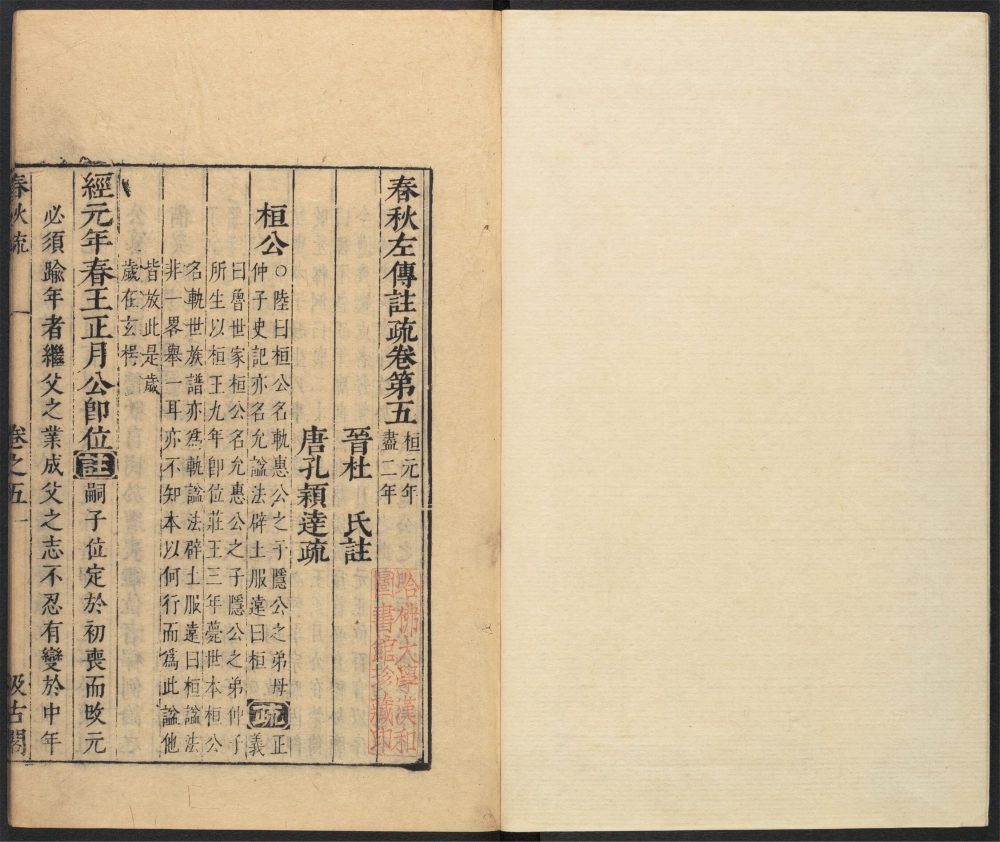 春秋左傳註疏卷第五
桓元年
盡二年
晉杜 氏註
唐孔穎達疏
桓公
○陸曰桓公名軌惠公之子隱公之弟母
仲子史記亦名允謚法辟土服遠曰桓
疏
正
義
曰魯世家桓公名允惠公之子隱公之弟仲子
所生以桓王九年即位莊王三年薨世本桓公
名軌世族譜亦為軌謚法辟土服遠曰桓謚法
非一畧舉一耳亦不知本以何行而為此謚他
皆放此是歲
歲在玄枵
經元年春王正月公即位
註
嗣子位定於初喪而改元
必須踰年者繼父之業成父之志不忍有變於中年
春秋疏
卷之五
一
汲古閣
哈佛大學漢和
圖書館珍藏印